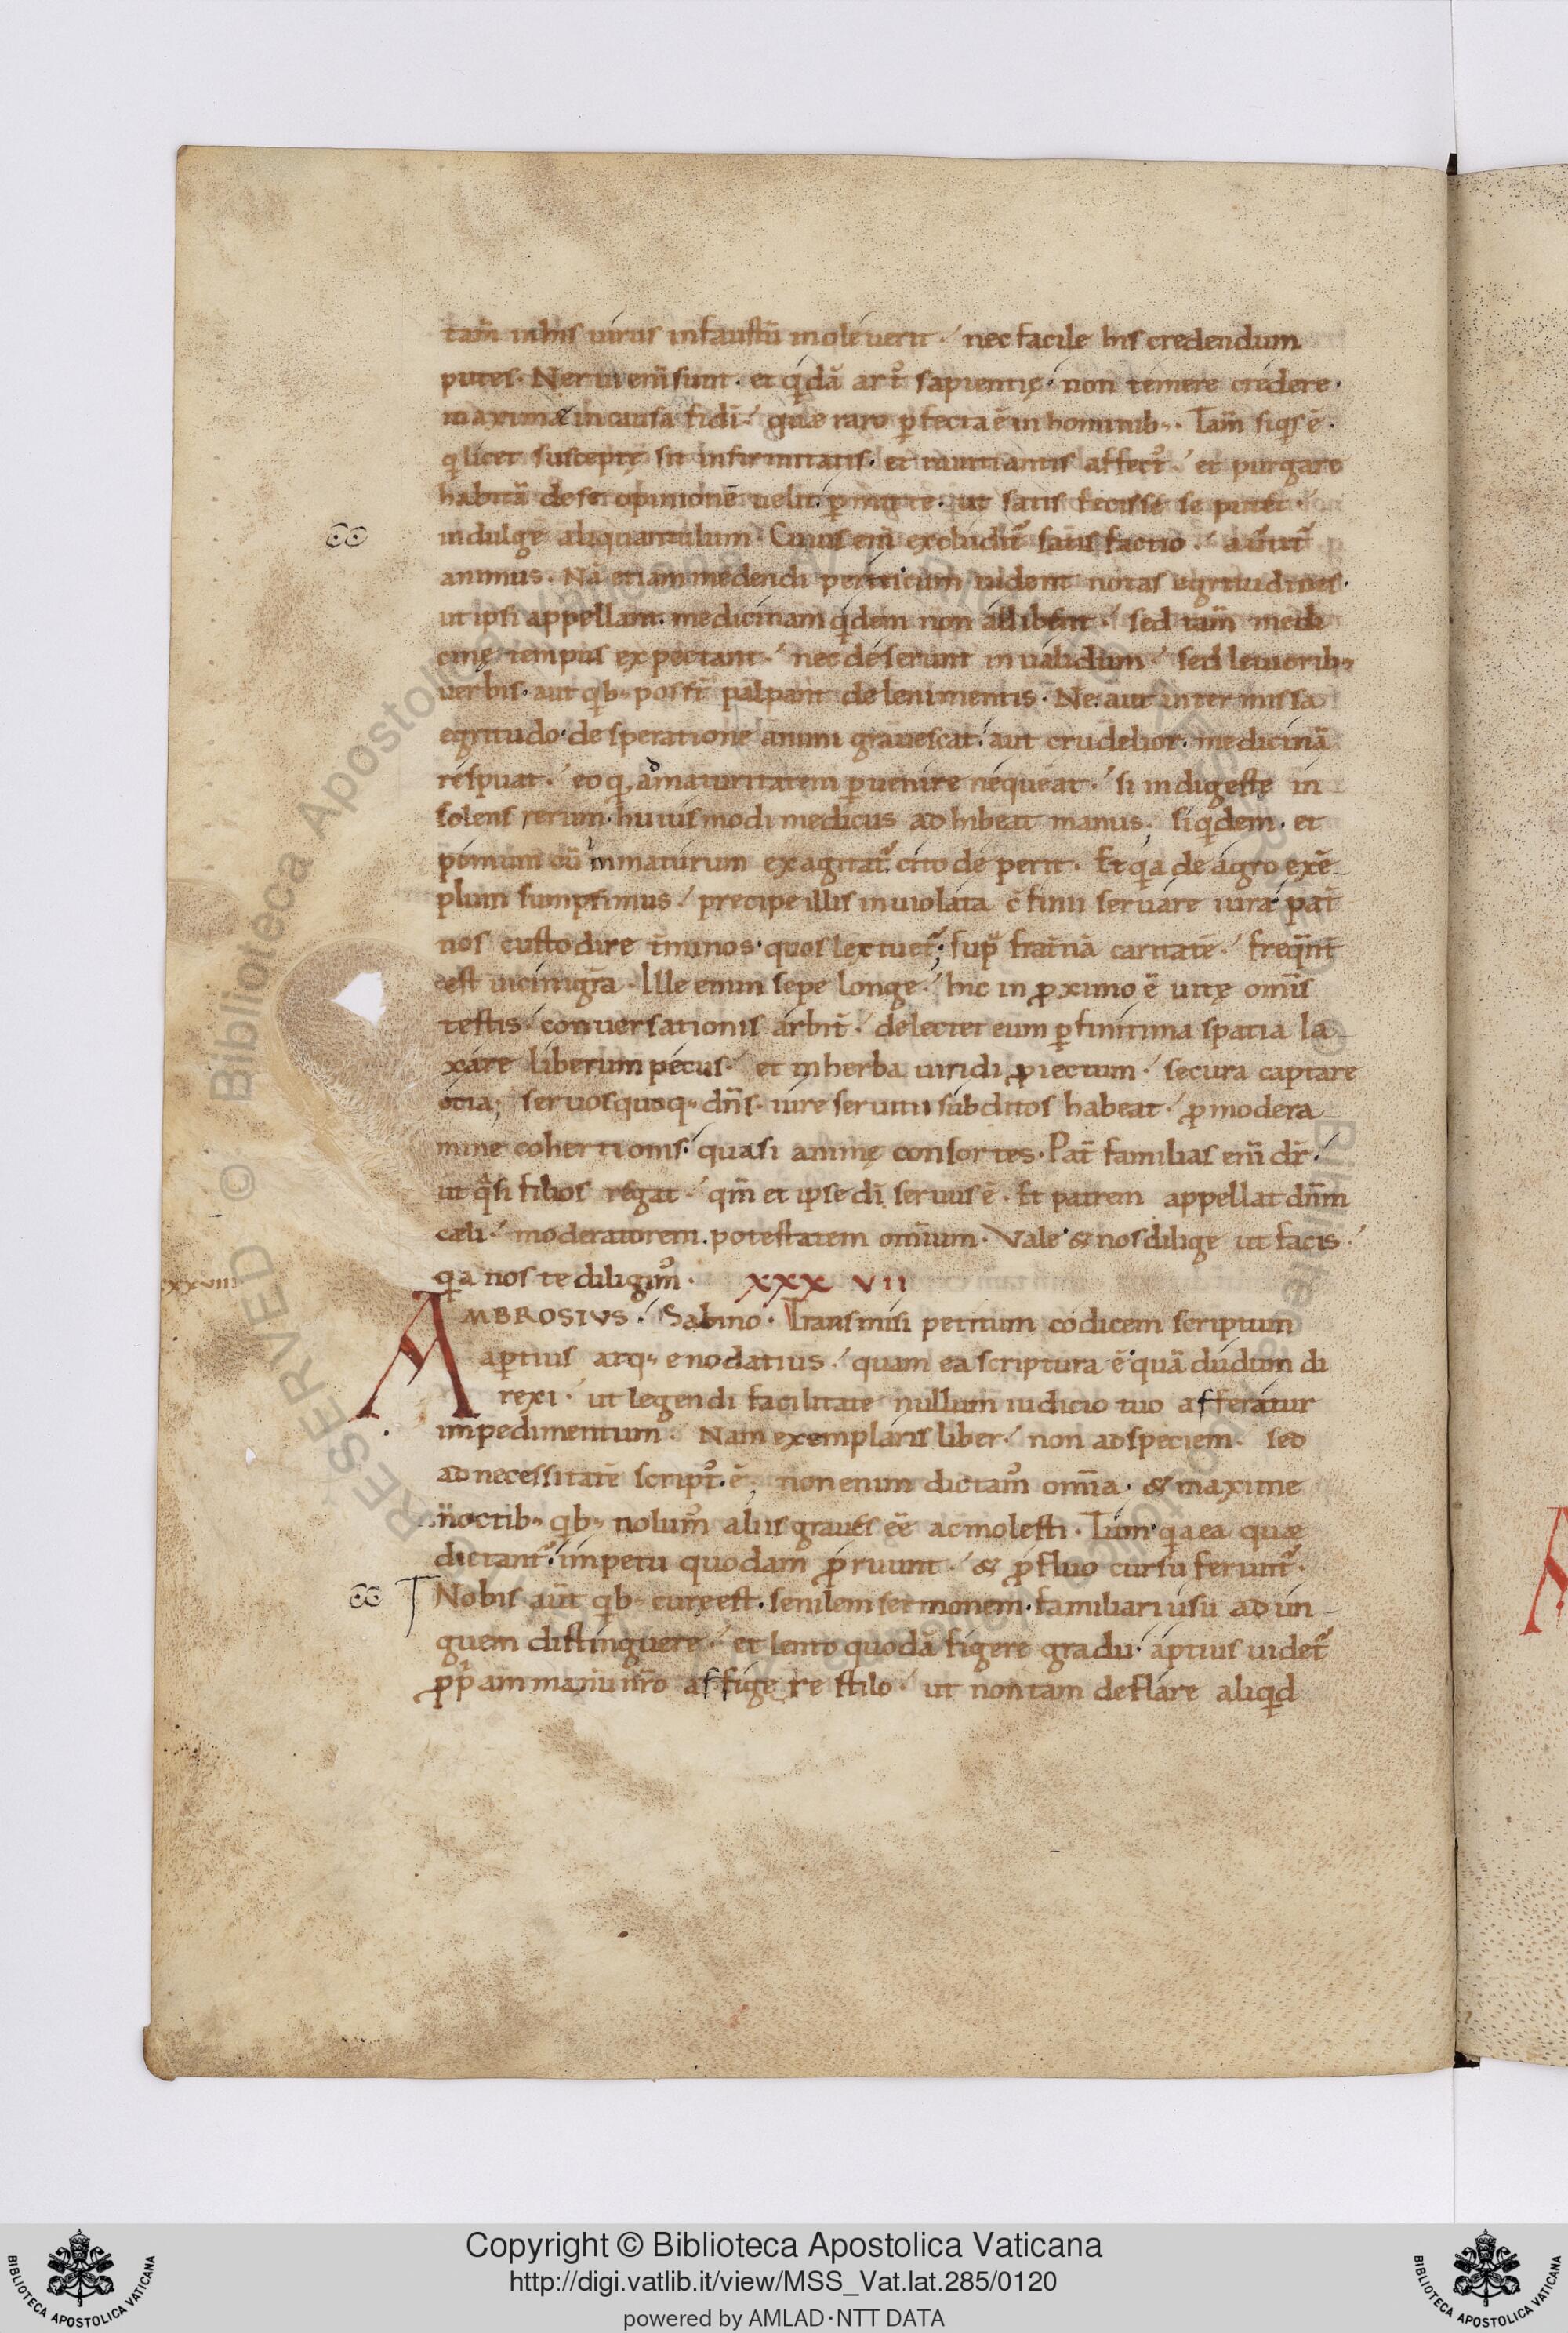 tam̄ in his uirus infaustū inoleuerit· nec facile his credendum
putes· Nerui em̄ sunt· et qͥdā art᷒ sapientię· non temere credere·
maximæ in causa fidī· quæ raro ꝑfecta ē in hominib;· Tam̄ siqͥs ē·
qͥ licet suscepte sit infirmitatis· et nutantis affect᷒· et purgare
habitā de se opinionē uelit· ꝑmitte· ut satis fecisse se putet·
indulge aliquantulum· Cuius em̄ excludit᷑ satis factio·
animus· Nā etiam medendi periti cum uident notas egritudines·
ut ipsi appellant· medicinam qͥdem non adhibent· sed tam̄ medi
cinę tempus expectant· nec deserunt inualidum· sed leuiorib;
uerbis· aut qͥb; poss̄t palpant delenimentis· Ne aut intermissa
egritudo· desperatione animi grauescat· aut crudelior· medicinā
respuat· eo qͥ admaturitatem ꝑuenire nequeat· si indigeste in
solens rerum· huiusmodi medicus adhibeat manus; siqͥdem· et
pomum cū inmaturum exagitat᷑· cito deperit· Et qͥa de agro exē-
plum sumpsimus· precipe illis inuiolata c̄finii seruare iura· pat̄
nos custodire t̄minos· quos lex tuet᷑; sup̄ frat̄nā caritatē· freq̄nt̄
est uicini gr̄a· Ille enim sepe longe· hic in ꝓximo ē uitę om̄is
testis· conuersationis arbit̄· delectet eum ꝑ finitima spatia la-
xare liberum pecus· et in herba uiridi ꝓiectum· secura captare
otia; seruosquoq; dn̄s· iure seruitii subditos habeat· ꝓ modera-
mine cohertionis· quasi animę consortes· Pat̄ familias em̄ dr̄·
ut qͣsi filios regat· qm̄ et ipse dī seruus ē· Et patrem appellat dn̄m
cæli· moderatorem· potestatem omīum· Vale & nos dilige ut facis·
xxxviii
qͥa nos te diligim᷒· XXXVII
AMBROSIVS· Sabino· Transmisi petitum codicem scriptum
aptius atq; enodatius· quam ea scriptura ē quā dudum di
rexi· ut legendi facilitate nullum iudicio tuo afferatur
impedimentum· Nam exemplaris liber· non ad speciem· sed
ad necessitatē script᷒· ē; non enim dictam᷒ omīa· & maxime
noctib; qͥb; nolum᷒ aliis graues eē̄ ac molesti· Tum qͥa ea quæ
dictant᷑· impetu quodam ꝓruunt· & ꝓfluo cursu ferunt᷑·
Nobis aūt qͥb; curę est· senilem sermonem· familiari usu ad un-
guem distinguere· et lento quodā figere gradu· aptius uidet᷑
ꝓp̄am manū nr̄o affigere stilo· ut non tam deflare aliqͥd
Copyright © Biblioteca Apostolica Vaticana
http://digi.vatlib.it/view/MSS_Vat.lat.285/0120
powered by AMLAD·NTT DATA
BIBLIOTECA APOSTOLICA VATICANA
BIBLIOTECA APOSTOLICA VATICANA